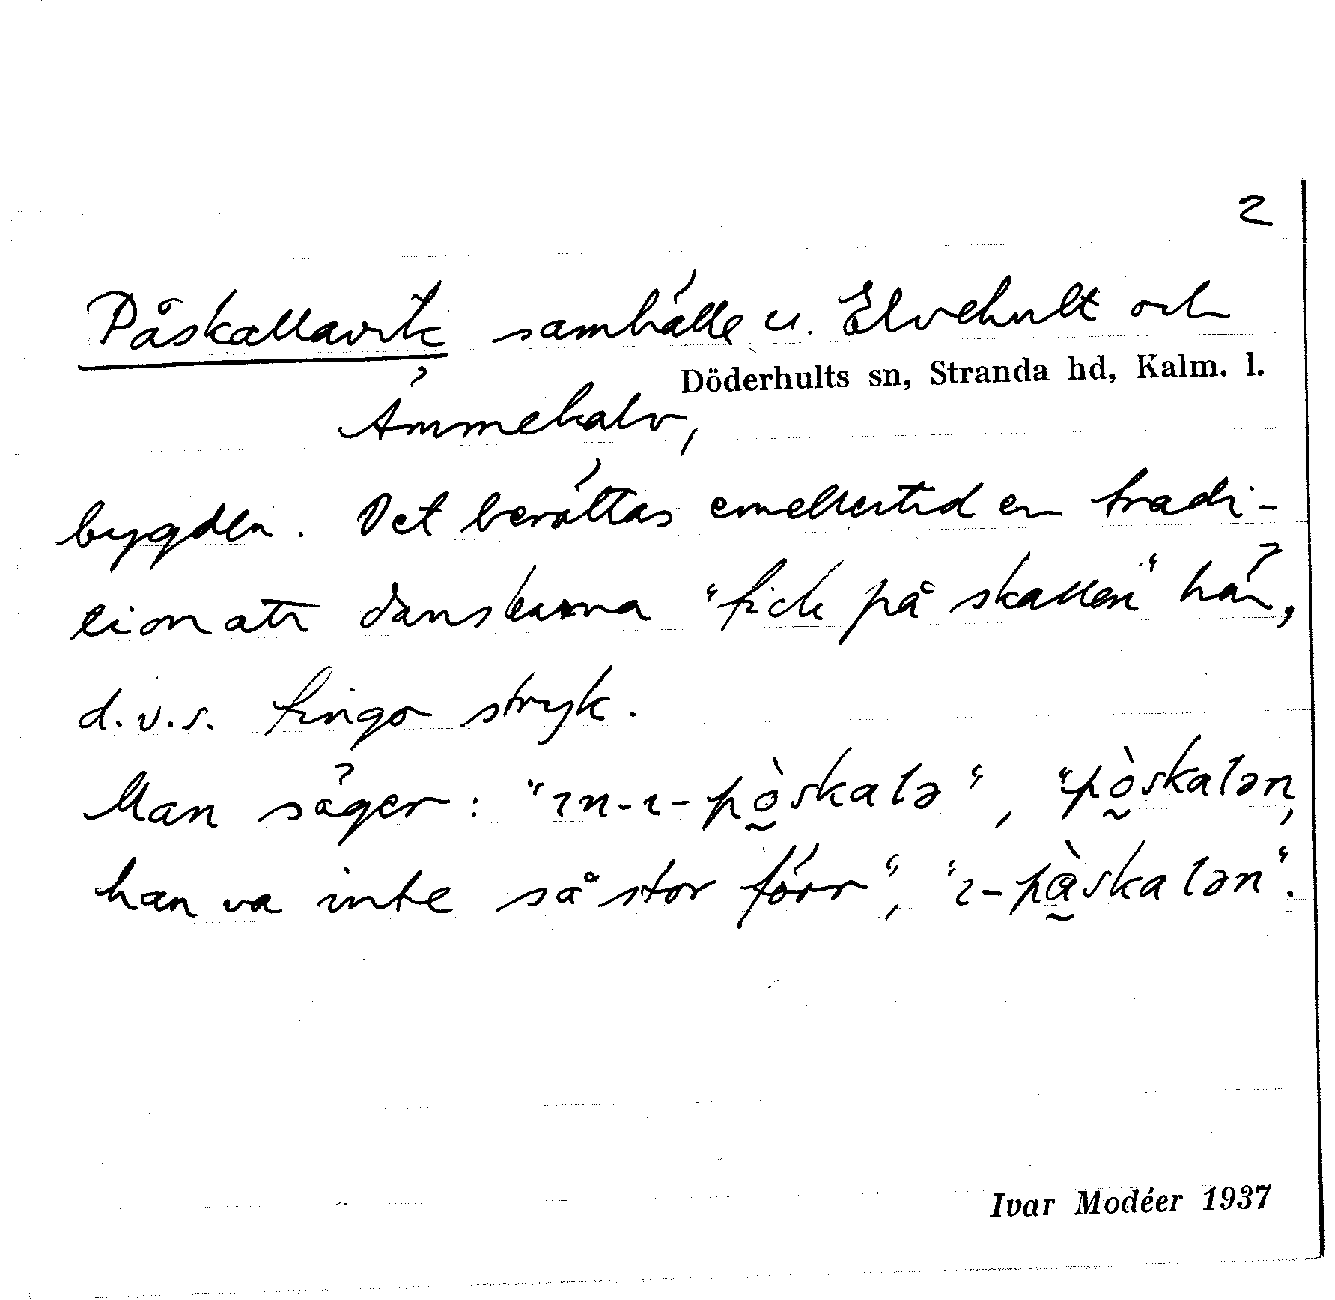 2
Påskallavik samhälle u. Elvehult och
Döderhults sn, Stranda hd, Kalm. l.
Ämmekalv,
bygden. Det berättas emellertid en tradi-
tion att danskarna "fick på skallen" här,
d.v.s. fingo stryk.
Man säger: "ɪn-ɪ-pò̰skalə", "pò̰skalən,
han va inte så stor förr", "ɪ-pà̰skalən".
Ivar Modéer 1937